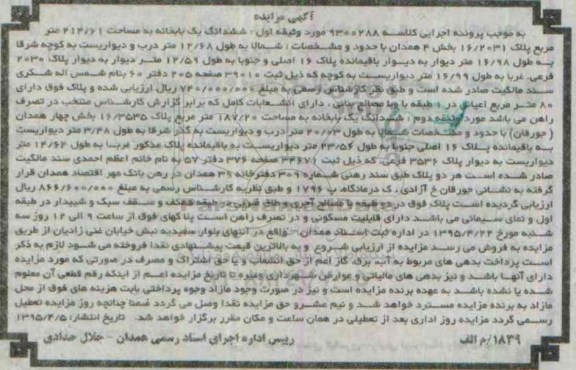 آگهی مزایده
به موجب پرونده اجرایی کلاسه ۹۳۰۰۲۸۸ مورد وثیقه اول : ششدانگ یک بابخانه به مساحت ۲۱۴/۶۱ متر
مربع پلاک ۱۶/۲۰۳۱ بخش ۴ همدان با حدود و مشخصات : شمالا به طول ۱۲/۶۸ متر درب و دیواریست به کوچه شرقا
به طول ۱۶/۹۸ متر دیوار به دیوار باقیمانده پلاک ۱۶ اصلی و جنوبا به طول ۱۲/۵۹ متر دیوار به دیوار پلاک ۲۰۳۰
فرعی غربا به طول ۱۶/۹۹ متر دیواریست به کوچه که ذیل ثبت ۳۹۰۱۰ صفحه ۲۰۵ دفتر ۶۰ بنام شمس اله شکری
سند مالکیت صادر شده است و طبق نظر کارشناس رسمی به مبلغ ۷۴۰/۰۰۰/۰۰۰ ریال ارزیابی شده و پلاک فوق دارای
۸۰ متر مربع اعیان در ۱ طبقه با مصالح بنایی ، دارای انشعابات کامل که برابر گزارش کارشناس منتخب در تصرف
راهن می باشد مورد وثیقه دوم : ششدانگ یک بابخانه به مساحت ۱۸۷/۲۰ متر مربع پلاک ۱۶/۳۵۳۵ بخش چهار همدان
( جورقان) با حدود و مشخصات شمالا به طول ۲۰/۷۳ متر درب و دیواریست به گذر شرقا به طول ۳/۴۸ متر دیواریست
به باقیمانده پلاک ۱۶ اصلی جنوبا به طول ۲۳/۵۶ متر دیواریست به باقیمانده پلاک مذکور غربا به طول ۱۴/۶۲ متر
دیواریست به دیوار پلاک ۳۵۳۶ فرعی که ذیل ثبت ۳۴۶۷۱ صفحه ۳۷۶ دفتر ۵۷ به نام خانم اعظم احمدی سند مالکیت
صادر شده است هر دو پلاک طبق سند رهنی شماره ۳۰۹ دفترخانه ۳۹ همدان در رهن بانک مهر اقتصاد همدان قرار
گرفته به نشانی جورقان خ آزادی ، ک درمانگاه پ ۱۷۹۶ و طبق نظریه کارشناس رسمی به مبلغ ۸۶۶/۶۰۰/۰۰۰ ریال
ارزیابی گردیده است پلاک فوق در دو طبقه با مصالح آجری و طاق ضربی طبقه همکف و سقف سبک و شیبدار در طبقه
اول و نمای سیمانی می باشد دارای قابلیت مسکونی و در تصرف راهن است پلاکهای فوق از ساعت ۹ الی ۱۲ روز سه
شنبه مورخ ۱۳۹۵/۴/۲۲ در اداره ثبت اسناد همدان - واقع در انتهای بلوار سفیدبه نبش خیابان غنی زادیان از طریق
مزایده به فروش می رسد مزایده از ارزیابی شروع و به بالاترین قیمت پیشنهادی نقدا فروخته می شود لازم به ذکر
است پرداخت بدهی های مربوط به آب، برق، گاز اعم از حق انشعاب و یا حق اشتراک و مصرف در صورتی که مورد مزایده
دارای آنها باشد و نیز بدهی های مالیاتی و عوارض شهرداری وغیره تا تاریخ مزایده اعم از اینکه رقم قطعی آن معلوم
شده یا نشده باشد به عهده برنده مزایده است و نیز در صورت وجود مازاد وجوه پرداختی بابت هزینه های فوق از محل
مازاد به برنده مزایده مسترد خواهد شد و نیم عشر و حق مزایده نقدا وصول می گردد ضمنا چنانچه روز مزایده تعطیل
رسمی گردد مزایده روز اداری بعد از تعطیلی در همان ساعت و مکان مقرر برگزار خواهد شد. تاریخ انتشار ۱۳۹۵/۴/۵
۱۸۳۹/م الف
رییس اداره اجرای اسناد رسمی همدان - جلال حدادی